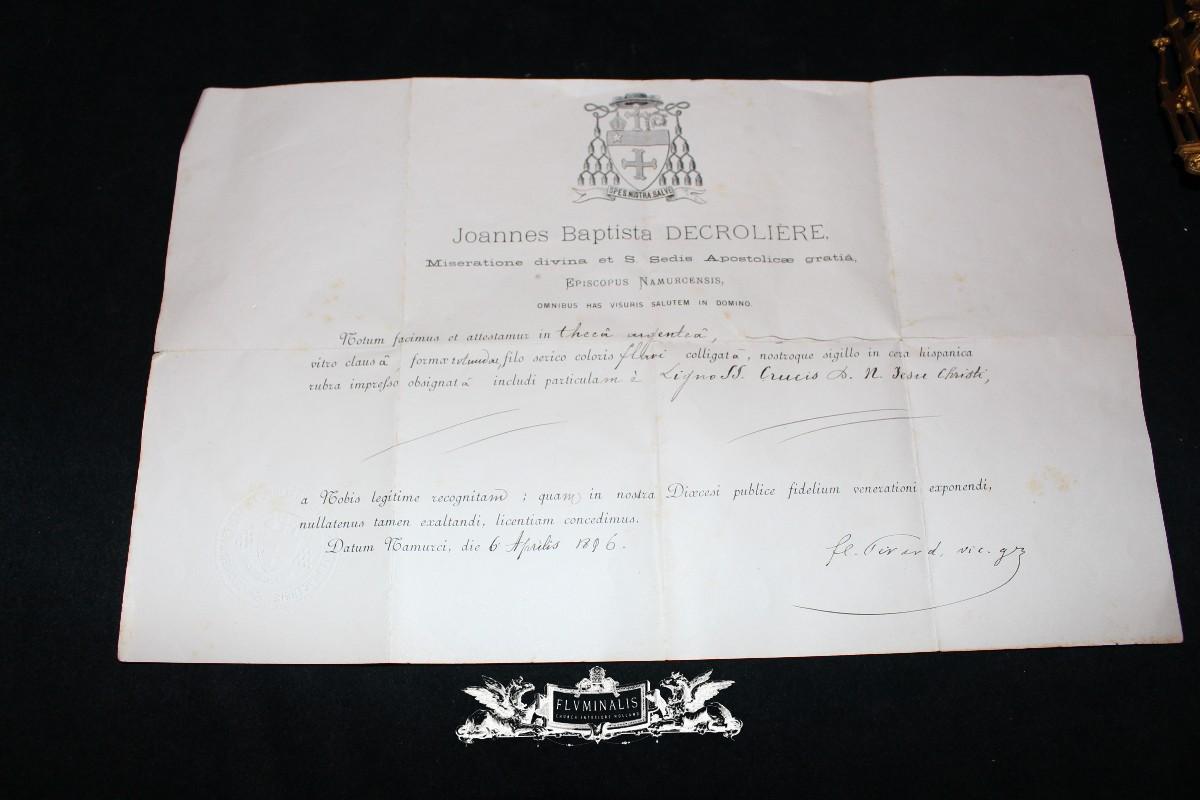 SPES NOSTRA SALVE
Joannes Baptista DECROLIÈRE,
Miseratione divina et S. Sedis Apostolicæ gratiâ,
EPISCOPUS NAMURCENSIS,
OMNIBUS HAS VISURIS SALUTEM IN DOMINO.
Notum facimus et attestamur in thecâ argenteâ,
vitro clausâ, formæ rotundæ, filo serico coloris flavi colligatâ, nostroque sigillo in cera hispanica
rubra impresso obsignatâ includi particulam è Ligno SS. Crucis D. N. Jesu Christi,
a Nobis legitime recognitam ; quam in nostra Diœcesi publice fidelium venerationi exponendi,
nullatenus tamen exaltandi, licentiam concedimus.
Datum Namurci, die 6 Aprilis 1896.
vic. g
FLVMINALIS
CHURCH INTERIORS HOLLAND